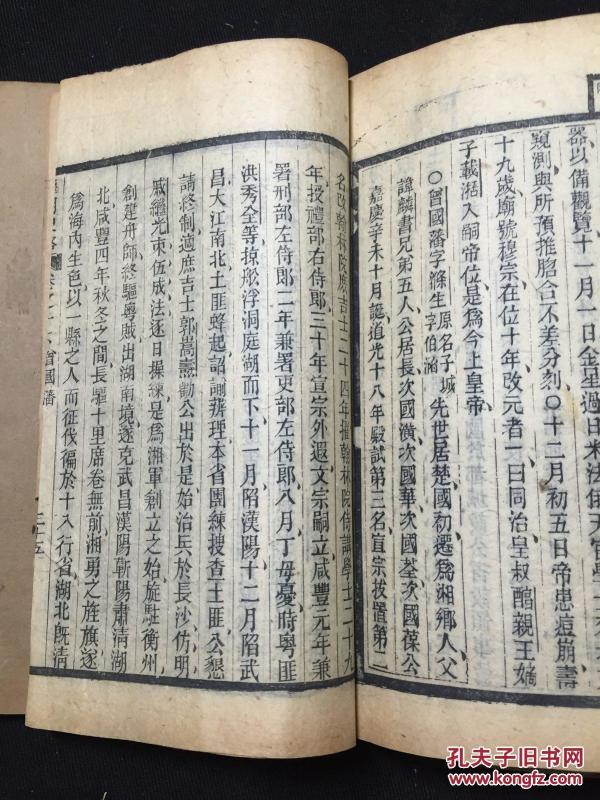 器以備觀覽十一月一日金星過日米法俄天官
窺測與所預推脗合不差分刻〇十二月初五日帝患痘崩壽
十九歲廟號穆宗在位十年改元者一曰同治皇叔醕親王嫡
子載湉入嗣帝位是爲今上皇帝
〇曾國藩字滌生原名子城字伯涵先世居楚國初遷爲湘鄉人父
諱麟書兄弟五人公居長次國潢次國華次國荃次國葆公
嘉慶辛未十月誕道光十八年殿試第三名宣宗拔置第二
名改翰林院庶吉士二十四年擢翰林院侍講學士二十九
年授禮部右侍郎三十年宣宗外遐文宗嗣立咸豐元年兼
署刑部左侍郎二年兼署吏部左侍郎八月丁母憂時粵匪
洪秀全等掠舩浮洞庭湖而下十一月陷漢陽十二月陷武
昌大江南北土匪蜂起詔諭辦理本省團練搜查土匪公懇
請終制適庶吉士郭嵩燾勸公出於是始治兵於長沙仿明
戚繼光束伍成法逐日操練是爲湘軍創立之始旋駐衡州
創建舟師終驅粵賊出湖南境遂克武昌漢陽蘄陽肅清湖
北咸豐四年秋冬之間長驅十里席卷無前湘勇之旌旗遂
爲海内生色以一縣之人而征伐徧於十八行省湖北旣清
曾國藩
二十五
孔夫子旧书网
www.kongfz.com